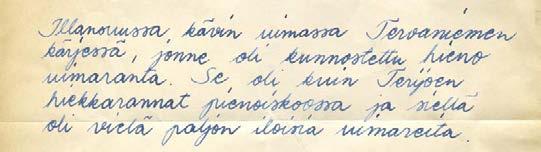 Illansuussa, kävin uimassa Tervaniemen
kärjessä, jonne oli kunnostettu hieno
uimaranta. Se oli kuin Terijoen
hiekkarannat pienoiskoossa ja sieltä
oli vielä paljon iloisia uimareita.